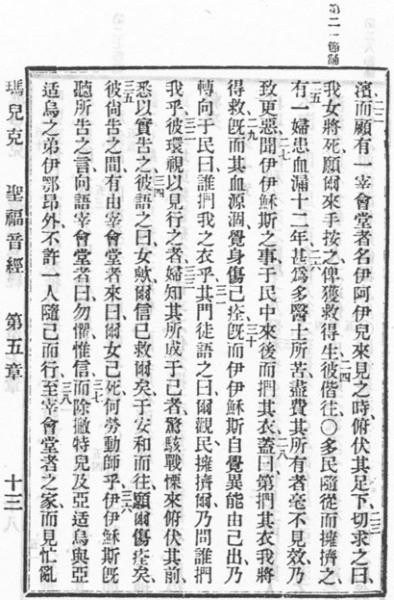 濱而顧有一宰會堂者名伊阿伊兒來見之時、俯伏其足下切求之曰、
我女將死、願爾來手按之、俾獲救得生彼偕往〇多民隨從而擁擠之、
有一婦患血漏十二年甚爲多醫士所苦盡費其所有者毫不見效乃
致更惡聞伊伊穌斯之事于民中來後而捫其衣蓋曰第捫其衣我將
得救旣而其血源涸、覺身傷已痊、旣而伊伊穌斯自覺異能由己出乃
轉向于民曰誰捫我之衣乎其門徒語之曰爾觀民擁擠爾乃問誰捫
我乎彼環視以見行之者、婦知其所成于己者、驚駭戰慄來俯伏其前、
悉以實告之彼語之曰女歟爾信已救爾矣于安和而往願爾傷痊矣
彼尙告之間有由宰會堂者來曰爾女已死何勞動師乎伊伊穌斯旣
聽所告之言、向語宰會堂者曰、勿懼惟信而除撇特兒及亞适烏與亞
适烏之弟伊鄂昂外不許一人隨己而行至宰會堂者之家而見忙亂
瑪兒克 聖福音經 第五章 十三